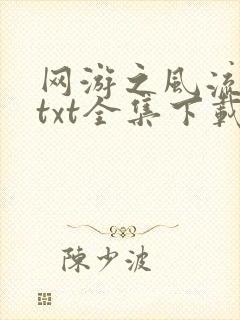 网游之风流
txt全集下載
陳少波